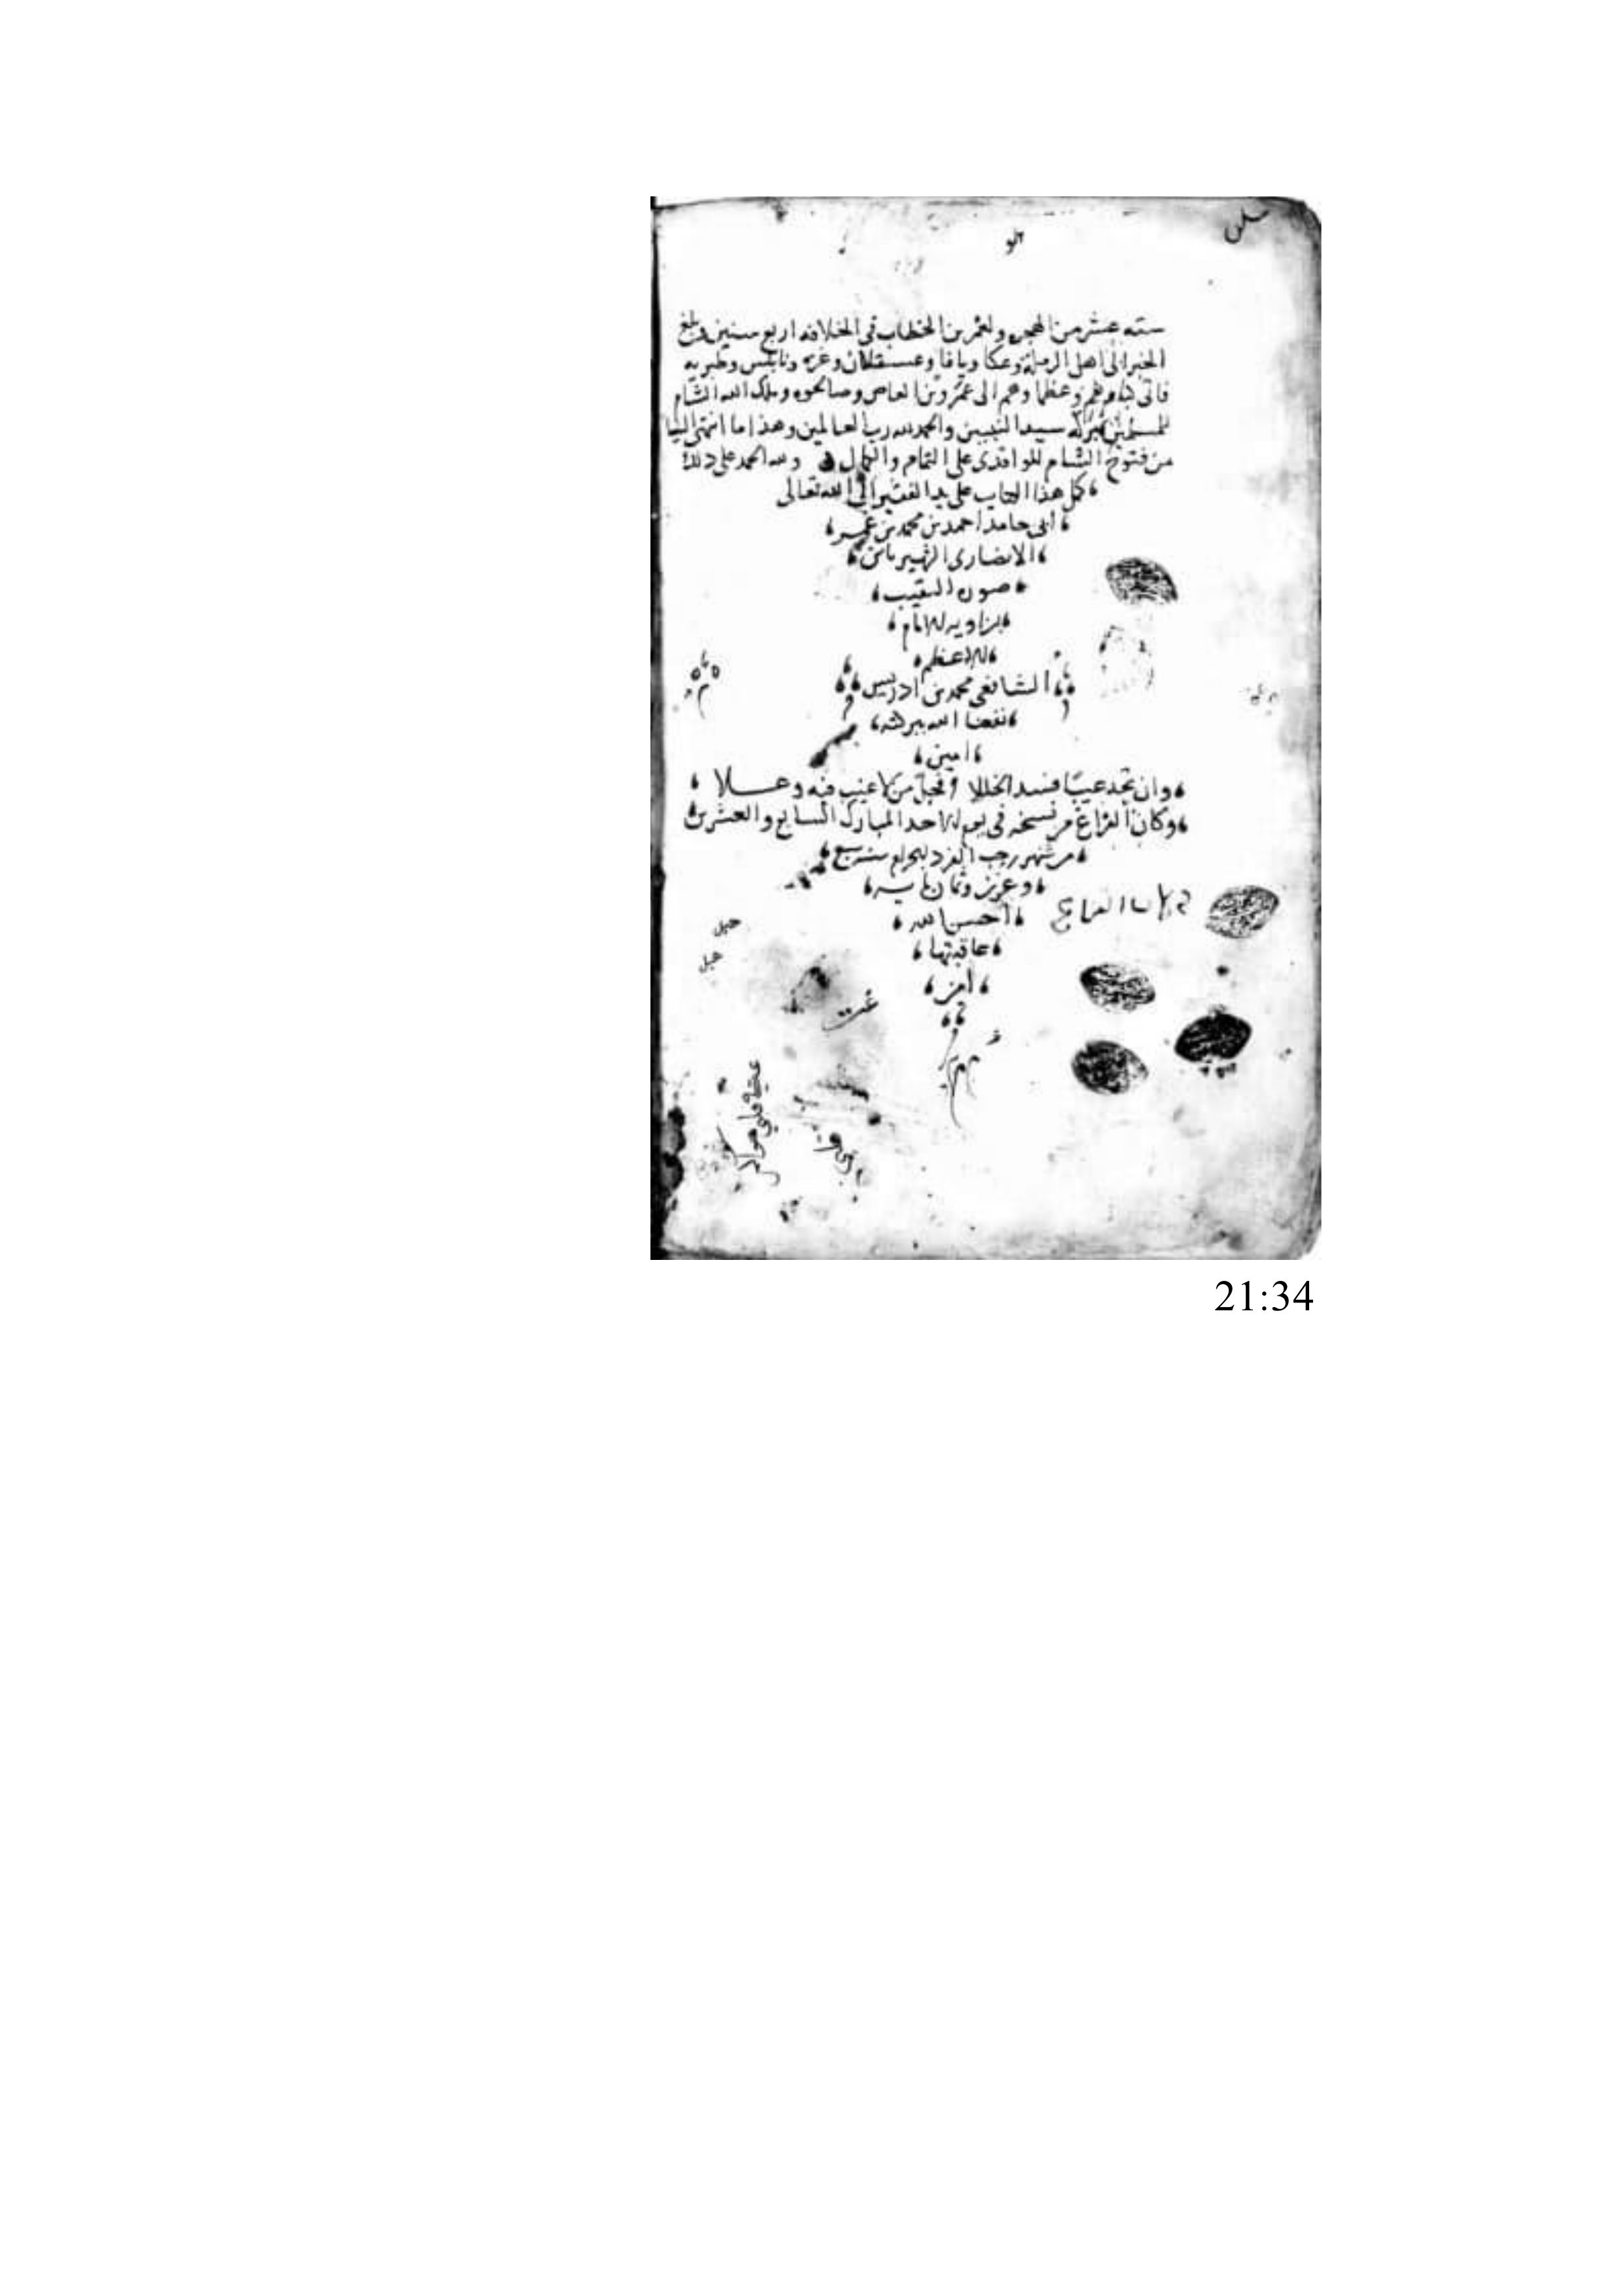 سته عشر من الهجره ولعمر بن الخطاب في الخلافه اربع سنين وبلغ
الخبر الى اهل الرمله وعكا ويافا وعسقلان وغزه ونابلس وطبريه
فاتى كبراوهم وعظماوهم الى عمرو بن العاص وصالحوه وملك الله الشام
للمسلمين ببركه سيد النبيين والحمد لله رب العالمين وهذا ما انتهى الينا
من فتوح الشام للواقدى على التمام والكمال ولله الحمد على ذلك
كمل هذا الكتاب على يد الفقير الى الله تعالى
ابى حامد احمد بن محمد بن عمر
الانصارى الشهير بابن
صون النقيب
بزاويه الامام
الاعظم
الشافعى محمد بن ادريس
نفعنا الله ببركته
امين
وان تجد عيبا فسد الخللا فجل من لا عيب فيه وعلا
وكان الفراغ من نسخه في يوم الاحد المبارك السابع والعشرين
من شهر رجب الفرد سنه سبع
وثمان مايه
احسن الله
عاقبتها
امين
حبل
21:34